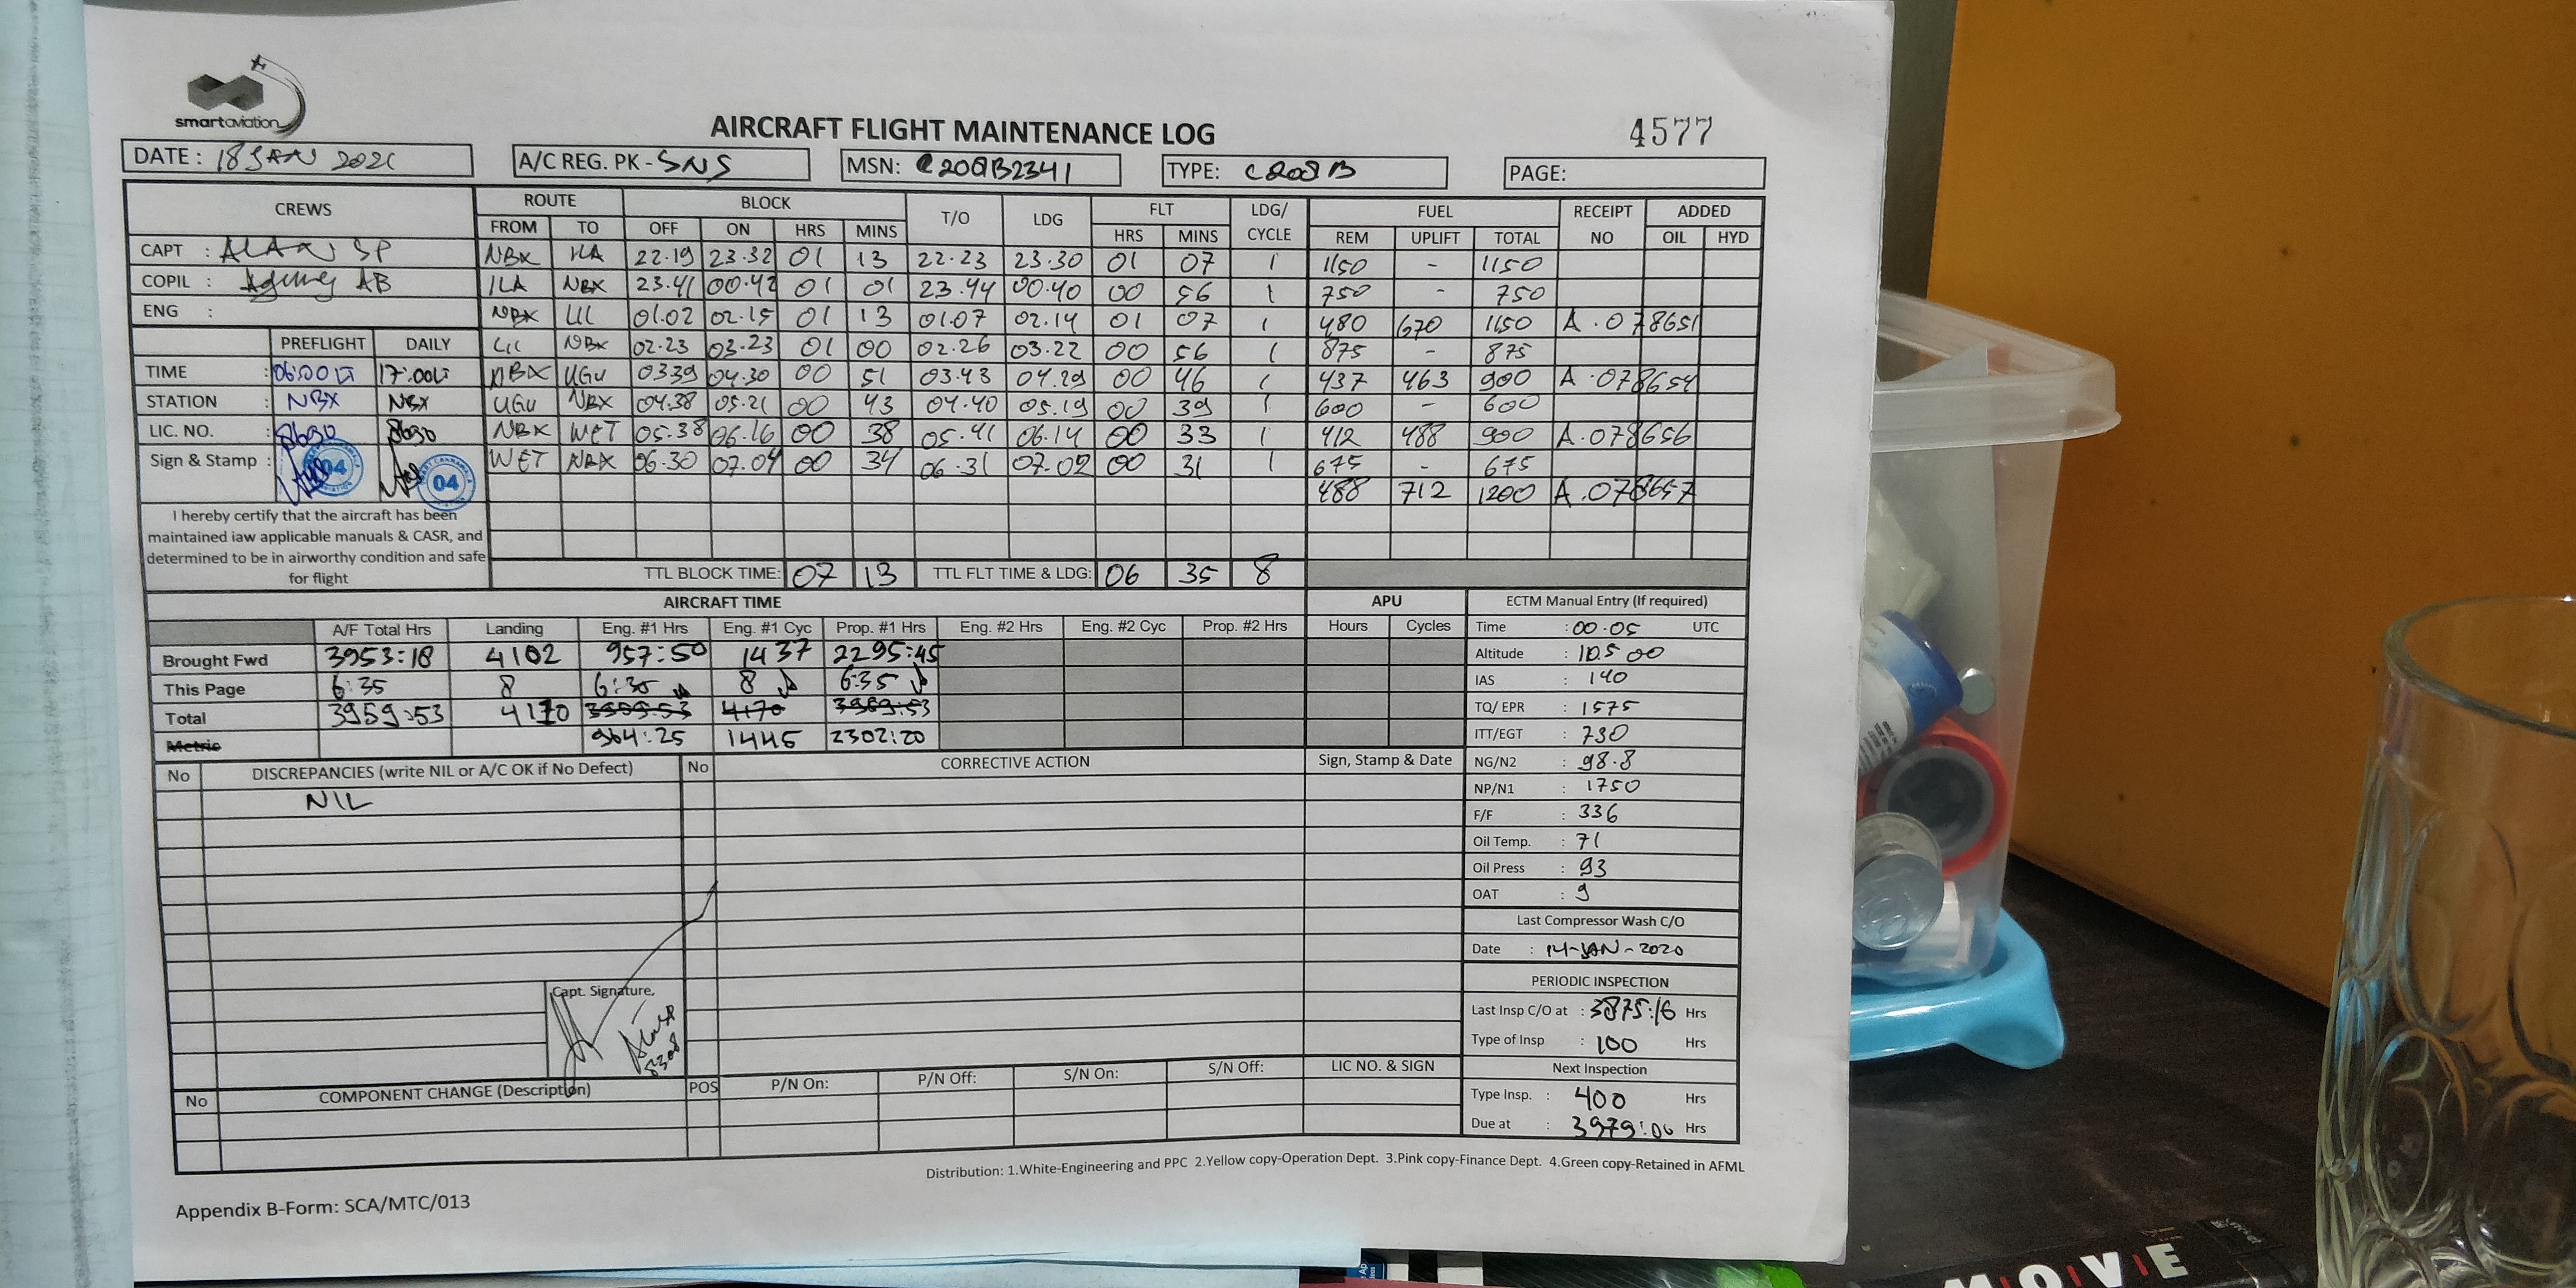 smartaviation
AIRCRAFT FLIGHT MAINTENANCE LOG
4577
DATE : 18 JAN 2021
A/C REG. PK - SNS
MSN: C208B2341
TYPE: C208B
PAGE:
CREWS ROUTE BLOCK T/O LDG FLT LDG/ CYCLE FUEL RECEIPT NO ADDED
FROM TO OFF ON HRS MINS HRS MINS REM UPLIFT TOTAL OIL HYD
CAPT : ALAN SP
NBX ILA 22.19 23.32 01 13 22.23 23.30 01 07 1 1150 - 1150
COPIL : Agung AB
ILA NBX 23.41 00.42 01 01 23.44 00.40 00 56 1 750 - 750
ENG :
NBX LII 01.02 02.15 01 13 01.07 02.14 01 07 1 480 670 1150 A.078651
PREFLIGHT DAILY
LII NBX 02.23 03.23 01 00 02.26 03.22 00 56 1 875 - 875
TIME : 06:00 LT 17:00 LT
NBX UGU 03.39 04.30 00 51 03.43 04.29 00 46 1 437 463 900 A.078654
STATION : NBX NBX
UGU NBX 04.38 05.21 00 43 04.40 05.19 00 39 1 600 - 600
LIC. NO. : 8690 8690
NBX WET 05.38 06.16 00 38 05.41 06.14 00 33 1 412 488 900 A.078656
Sign & Stamp : 04 04
WET NBX 06.30 07.04 00 34 06.31 07.02 00 31 1 675 - 675
488 712 1200 A.078657
I hereby certify that the aircraft has been
maintained iaw applicable manuals & CASR, and
determined to be in airworthy condition and safe
for flight
TTL BLOCK TIME: 07 13 TTL FLT TIME & LDG: 06 35 8
AIRCRAFT TIME APU ECTM Manual Entry (If required)
A/F Total Hrs Landing Eng. #1 Hrs Eng. #1 Cyc Prop. #1 Hrs Eng. #2 Hrs Eng. #2 Cyc Prop. #2 Hrs Hours Cycles
Time : 00.05 UTC
Brought Fwd 3953:18 4162 957:50 1437 2295:45
Altitude : 10.500
This Page 6:35 8 6:35 8 6:35
IAS : 140
Total 3959:53 4170 3959:53 4170 3959:53
TQ/ EPR : 1575
Metric 964:25 1445 2302:20
ITT/EGT : 730
No DISCREPANCIES (write NIL or A/C OK if No Defect) No CORRECTIVE ACTION Sign, Stamp & Date
NG/N2 : 98.8
NIL
NP/N1 : 1750
F/F : 336
Oil Temp. : 71
Oil Press : 93
OAT : 9
Last Compressor Wash C/O
Date : 14-JAN-2020
PERIODIC INSPECTION
Capt. Signature,
Alan SP
8308
Last Insp C/O at : 3875:16 Hrs
Type of Insp : 100 Hrs
Next Inspection
No COMPONENT CHANGE (Description) POS P/N On: P/N Off: S/N On: S/N Off: LIC NO. & SIGN
Type Insp. : 400 Hrs
Due at : 3979:06 Hrs
Distribution: 1.White-Engineering and PPC 2.Yellow copy-Operation Dept. 3.Pink copy-Finance Dept. 4.Green copy-Retained in AFML
Appendix B-Form: SCA/MTC/013
MOVE